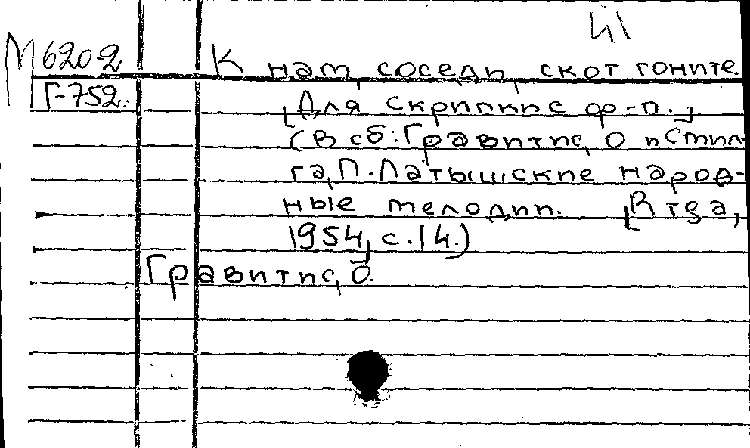 41
М620-2 К нам, соседи, скот гоните.
Г-752. [Для скрипки с ф-п.]
(В сб: Гравитис, О и Стил
га, П. Латышские народ-
ные мелодии. [Rīga,
1954, с. 14.)
Гравитис, О.